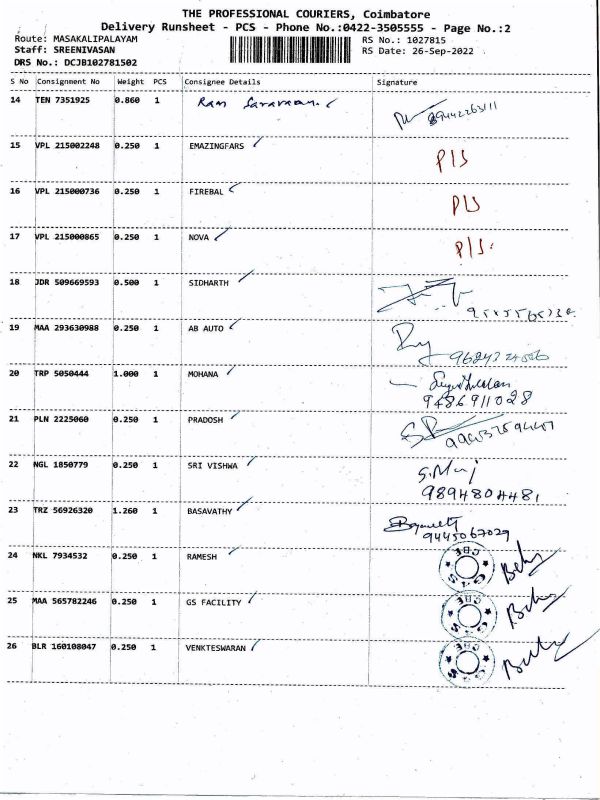 THE PROFESSIONAL COURIERS, Coimbatore
Delivery Runsheet - PCS - Phone No.:0422-3505555 - Page No.:2
Route: MASAKALIPALAYAM RS No.: 1027815
Staff: SREENIVASAN RS Date: 26-Sep-2022
DRS No.: DCJB102781502
S No Consignment No Weight PCS Consignee Details Signature
14 TEN 7351925 0.860 1 Ram Saravanan
15 VPL 215002248 0.250 1 EMAZINGFARS P/S
16 VPL 215000736 0.250 1 FIREBAL P/S
17 VPL 215000865 0.250 1 NOVA P/S.
18 JDR 509669593 0.500 1 SIDHARTH
19 MAA 293630988 0.250 1 AB AUTO
20 TRP 5050444 1.000 1 MOHANA
9486911028
21 PLN 2225060 0.250 1 PRADOSH
22 NGL 1850779 0.250 1 SRI VISHWA
9894804481
23 TRZ 56926320 1.260 1 BASAVATHY
9445067029
24 NKL 7934532 0.250 1 RAMESH
25 MAA 565782246 0.250 1 GS FACILITY
26 BLR 160108047 0.250 1 VENKTESWARAN